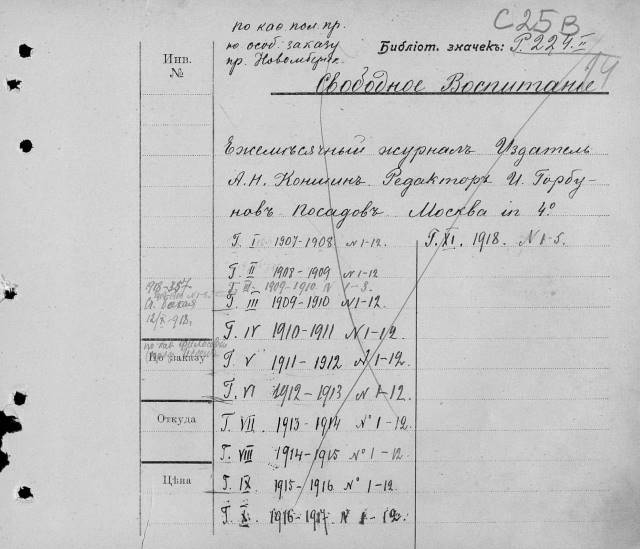 С25В
по каб. пол. пр.
по особ. заказу
пр. Новомберг.
Библіот. значекъ: Р. 224. II
Инв.
№
Свободное Воспитаніе
Ежемѣсячный журналъ Издатель
А. Н. Коншинъ. Редакторъ И. Горбу-
новъ Посадовъ Москва in 4º
Г. I 1907-1908 N 1-12.
Г. XI. 1918. N 1-5.
Г. II 1908-1909 N 1-12
Г. III 1909-1910 N 1-8.
Г. III 1909-1910 N 1-12.
Г. IV 1910-1911 N 1-12
По заказу
Г. V 1911-1912 N 1-12.
Г. VI 1912-1913 N 1-12.
Откуда
Г. VII 1913-1914 Nº 1-12.
Г. VIII 1914-1915 Nº 1-12
Цѣна
Г. IX 1915-1916 N 1-12
Г. X 1916-1917 N 1-12.